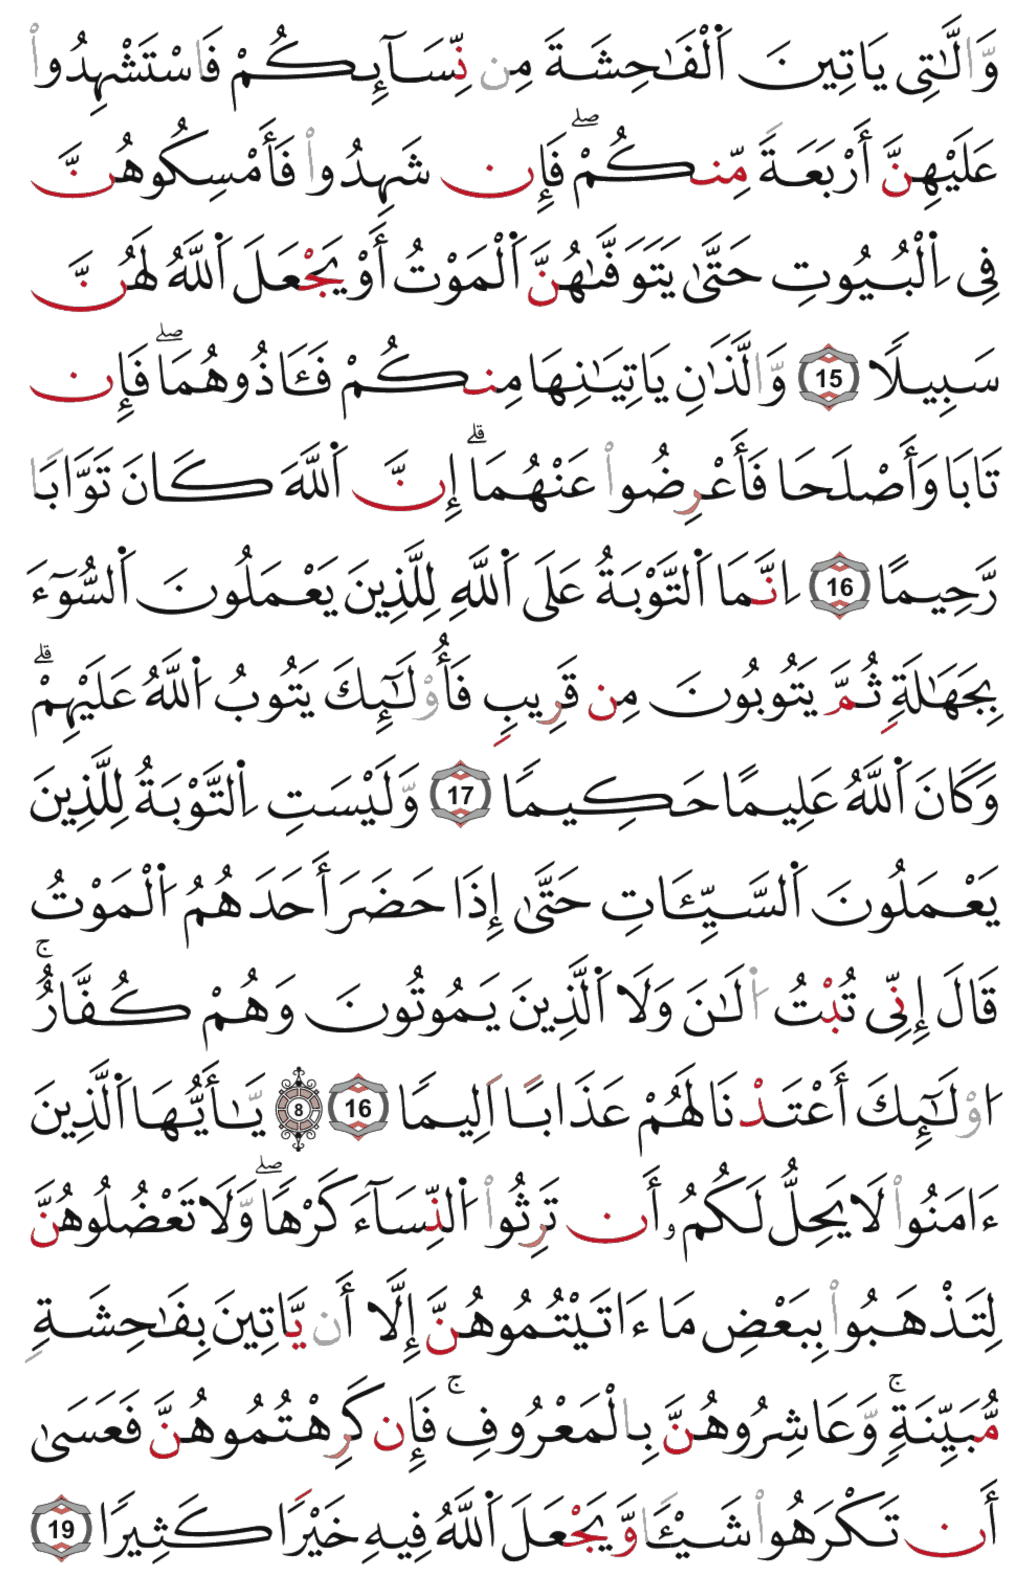 وَّالَّٰتِى يَاتِينَ اَ۬لْفَٰحِشَةَ مِن نِّسَآئِكُمْ فَاسْتَشْهِدُواْ
عَلَيْهِنَّ أَرْبَعَةً مِّنكُمْۖ فَإِن شَهِدُواْ فَأَمْسِكُوهُنَّ
فِى اِ۬لْبُيُوتِ حَتَّىٰ يَتَوَفَّىٰهُنَّ اَ۬لْمَوْتُ أَوْ يَجْعَلَ اَ۬للَّهُ لَهُنَّ
سَبِيلًا 15 وَّالَّذَٰنِ يَاتِيَٰنِهَا مِنكُمْ فَـَٔاذُوهُمَاۖ فَإِن
تَابَا وَأَصْلَحَا فَأَعْرِضُواْ عَنْهُمَاۗ إِنَّ اَ۬للَّهَ كَانَ تَوَّابًا
رَّحِيمًا 16 اِنَّمَا اَ۬لتَّوْبَةُ عَلَى اَ۬للَّهِ لِلَّذِينَ يَعْمَلُونَ اَ۬لسُّوٓءَ
بِجَهَٰلَةٍ ثُمَّ يَتُوبُونَ مِن قَرِيبٍ فَأُوْلَٰٓئِكَ يَتُوبُ اُ۬للَّهُ عَلَيْهِمْۗ
وَكَانَ اَ۬للَّهُ عَلِيمًا حَكِيمًا 17 وَّلَيْسَتِ اِ۬لتَّوْبَةُ لِلَّذِينَ
يَعْمَلُونَ اَ۬لسَّيِّـَٔاتِ حَتَّىٰ إِذَا حَضَرَ أَحَدَهُمُ اُ۬لْمَوْتُ
قَالَ إِنِّى تُبْتُ اُ۬لَٰنَ وَلَا اَ۬لَّذِينَ يَمُوتُونَ وَهُمْ كُفَّارٌۚ
اُوْلَٰٓئِكَ أَعْتَدْنَا لَهُمْ عَذَابًا اَلِيمًا 16 8 يَّٰأَيُّهَا اَ۬لَّذِينَ
ءَامَنُواْ لَا يَحِلُّ لَكُمُۥ أَن تَرِثُواْ اُ۬لنِّسَآءَ كَرْهًاۖ وَّلَا تَعْضُلُوهُنَّ
لِتَذْهَبُواْ بِبَعْضِ مَا ءَاتَيْتُمُوهُنَّ إِلَّا أَن يَّاتِينَ بِفَٰحِشَةٍ
مُّبَيِّنَةٍۚ وَّعَاشِرُوهُنَّ بِالْمَعْرُوفِۚ فَإِن كَرِهْتُمُوهُنَّ فَعَسَىٰ
أَن تَكْرَهُواْ شَيْـًٔا وَّيَجْعَلَ اَ۬للَّهُ فِيهِ خَيْرًا كَثِيرًا 19